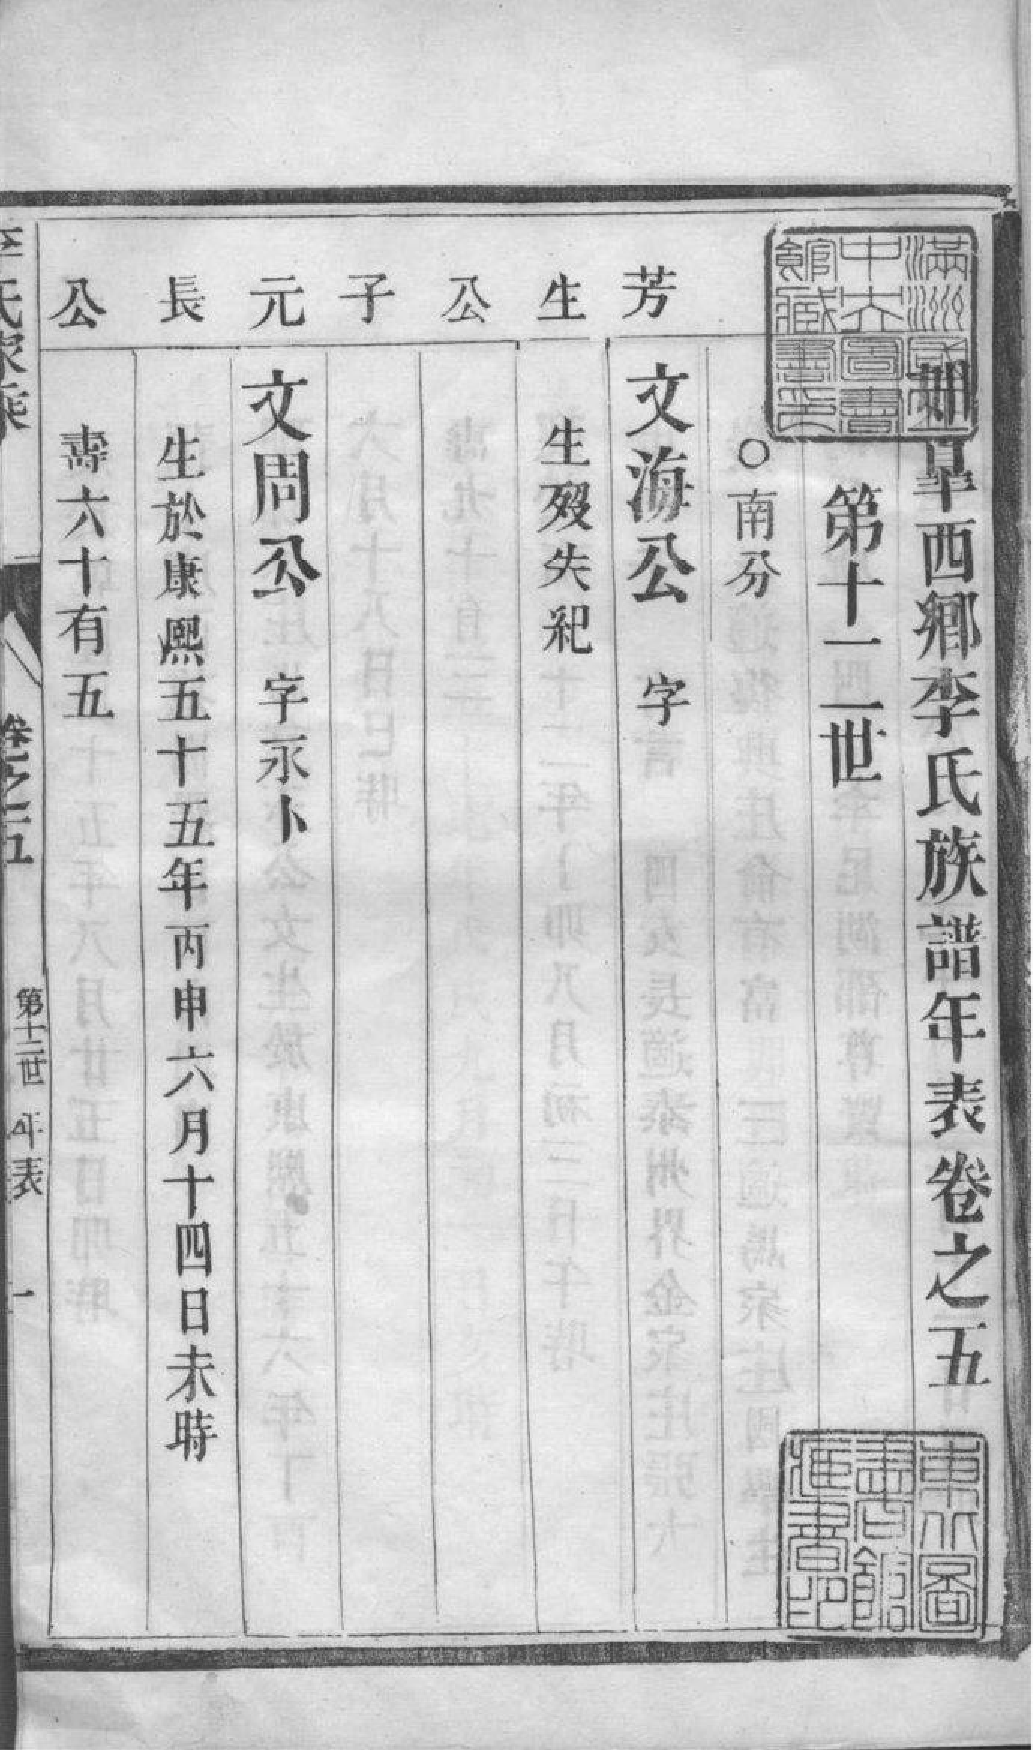 如皋西鄉李氏族譜年表卷之五
第十二世
○南分
芳
文海公 字
生
生歿失祀
公
子
元
文周公 字永卜
長
生於康熙五十五年丙申六月十四日未時
公
壽六十有五
李氏家乘
卷之五
第十二世 年表 一
滿洲國立
中央圖書
館藏書印
東北圖
書館
藏書印